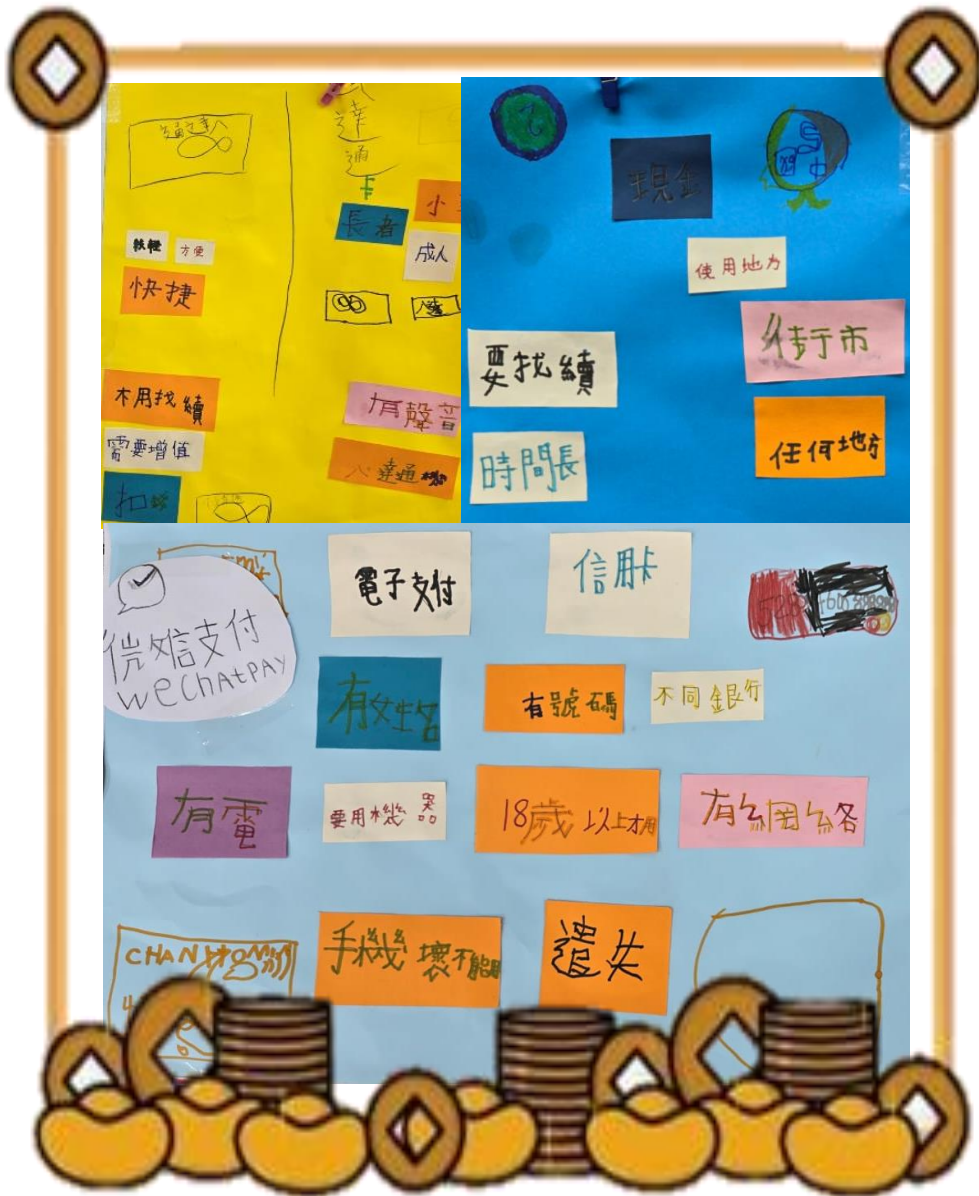 八達通
長者
成人
方便
快捷
八達
不用找續
有聲音
需要增值
八達通機
現金
使用地方
要找續
街市
時間長
任何地方
微信支付
WeChatPAY
電子支付
信用卡
有姓名
有號碼
不同銀行
有電
要用機器
18歲以上才用
有網絡
CHAN
手機壞不能用
遺失